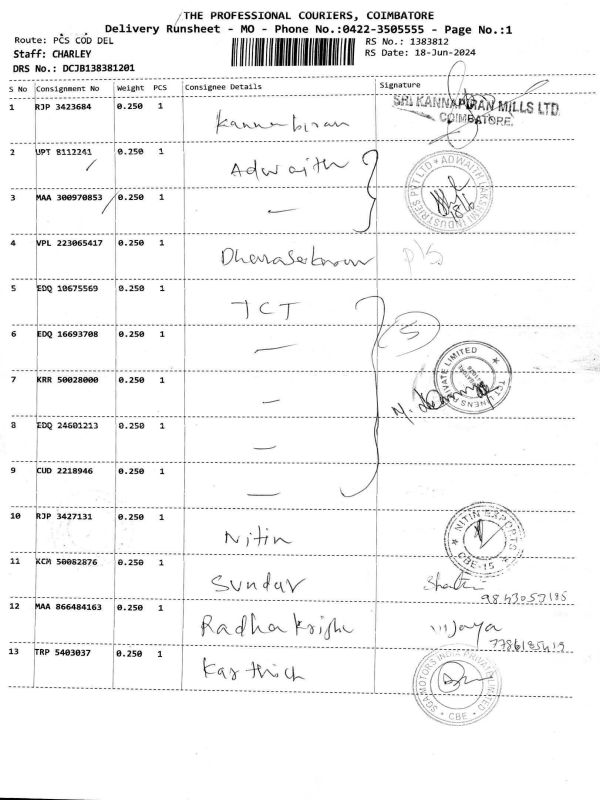 THE PROFESSIONAL COURIERS, COIMBATORE
Delivery Runsheet - MO - Phone No.:0422-3505555 - Page No.:1
Route: PCS COD DEL
RS No.: 1383812
Staff: CHARLEY
RS Date: 18-Jun-2024
DRS No.: DCJB138381201
S No Consignment No Weight PCS Consignee Details Signature
1 RJP 3423684 0.250 1 Kannabiran
SRI KANNAPIRAN MILLS LTD.
COIMBATORE.
2 UPT 8112241 0.250 1 Adwaith
ADWAITH LAKSHMI INDUSTRIES PVT LTD
18/6
3 MAA 300970853 0.250 1 —
4 VPL 223065417 0.250 1
5 EDQ 10675569 0.250 1 TCT
5
6 EDQ 16693708 0.250 1 —
TCT LINENS PRIVATE LIMITED
7 KRR 50028000 0.250 1 —
8 EDQ 24601213 0.250 1 —
9 CUD 2218946 0.250 1 —
10 RJP 3427131 0.250 1 Nitin
NITIN EXPORTS
CBE-15
11 KCM 50082876 0.250 1 Sundar
12 MAA 866484163 0.250 1 Radha Krishn
Vijaya
13 TRP 5403037 0.250 1 Karthick
SGA MOTORS INDIA PRIVATE LIMITED
CBE